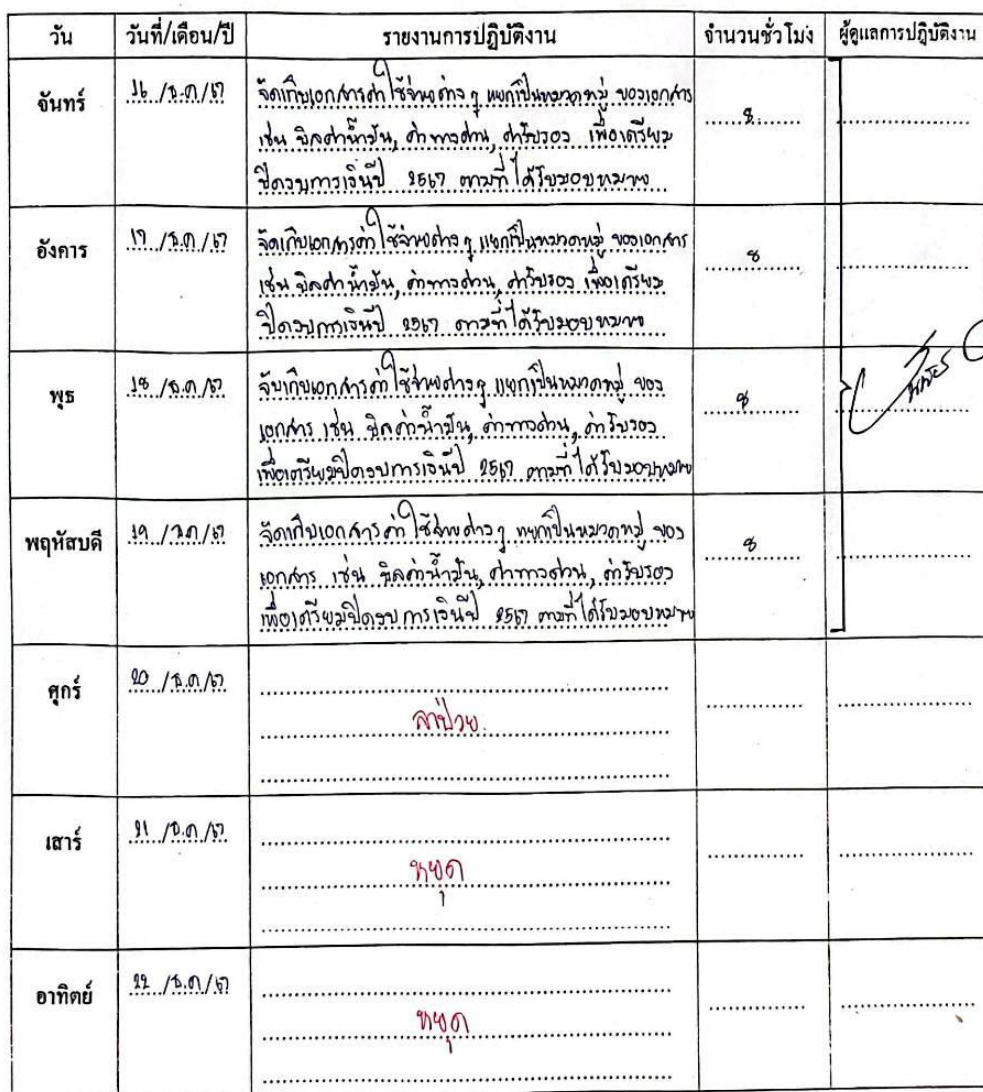 วัน วันที่/เดือน/ปี รายงานการปฏิบัติงาน จำนวนชั่วโมง ผู้ดูแลการปฏิบัติงาน
จันทร์ 16 /ธ.ค/67 จัดเก็บเอกสารค่าใช้จ่ายต่าง ๆ แยกเป็นหมวดหมู่ ของเอกสาร 8
เช่น บิลค่าน้ำมัน, ค่าทางด่วน, ค่ารับรอง เพื่อเตรียม
ปิดงบการเงินปี 2567 ตามที่ได้รับมอบหมาย
อังคาร 17 /ธ.ค/67 จัดเก็บเอกสารค่าใช้จ่ายต่าง ๆ แยกเป็นหมวดหมู่ ของเอกสาร 8
เช่น บิลค่าน้ำมัน, ค่าทางด่วน, ค่ารับรอง เพื่อเตรียม
ปิดงบการเงินปี 2567 ตามที่ได้รับมอบหมาย
พุธ 18 /ธ.ค/67 จับเก็บเอกสารค่าใช้จ่ายต่าง ๆ แยกเป็นหมวดหมู่ ของ 8
เอกสาร เช่น บิลค่าน้ำมัน, ค่าทางด่วน, ค่ารับรอง
เพื่อเตรียมปิดงบการเงินปี 2567 ตามที่ได้รับมอบหมาย
พฤหัสบดี 19 /ธ.ค/67 จัดเก็บเอกสารค่าใช้จ่ายต่าง ๆ แยกเป็นหมวดหมู่ ของ 8
เอกสาร เช่น บิลค่าน้ำมัน, ค่าทางด่วน, ค่ารับรอง
เพื่อเตรียมปิดงบการเงินปี 2567 ตามที่ได้รับมอบหมาย
ศุกร์ 20 /ธ.ค/67
ลาป่วย.
เสาร์ 21 /ธ.ค/67
หยุด
อาทิตย์ 22 /ธ.ค/67
หยุด